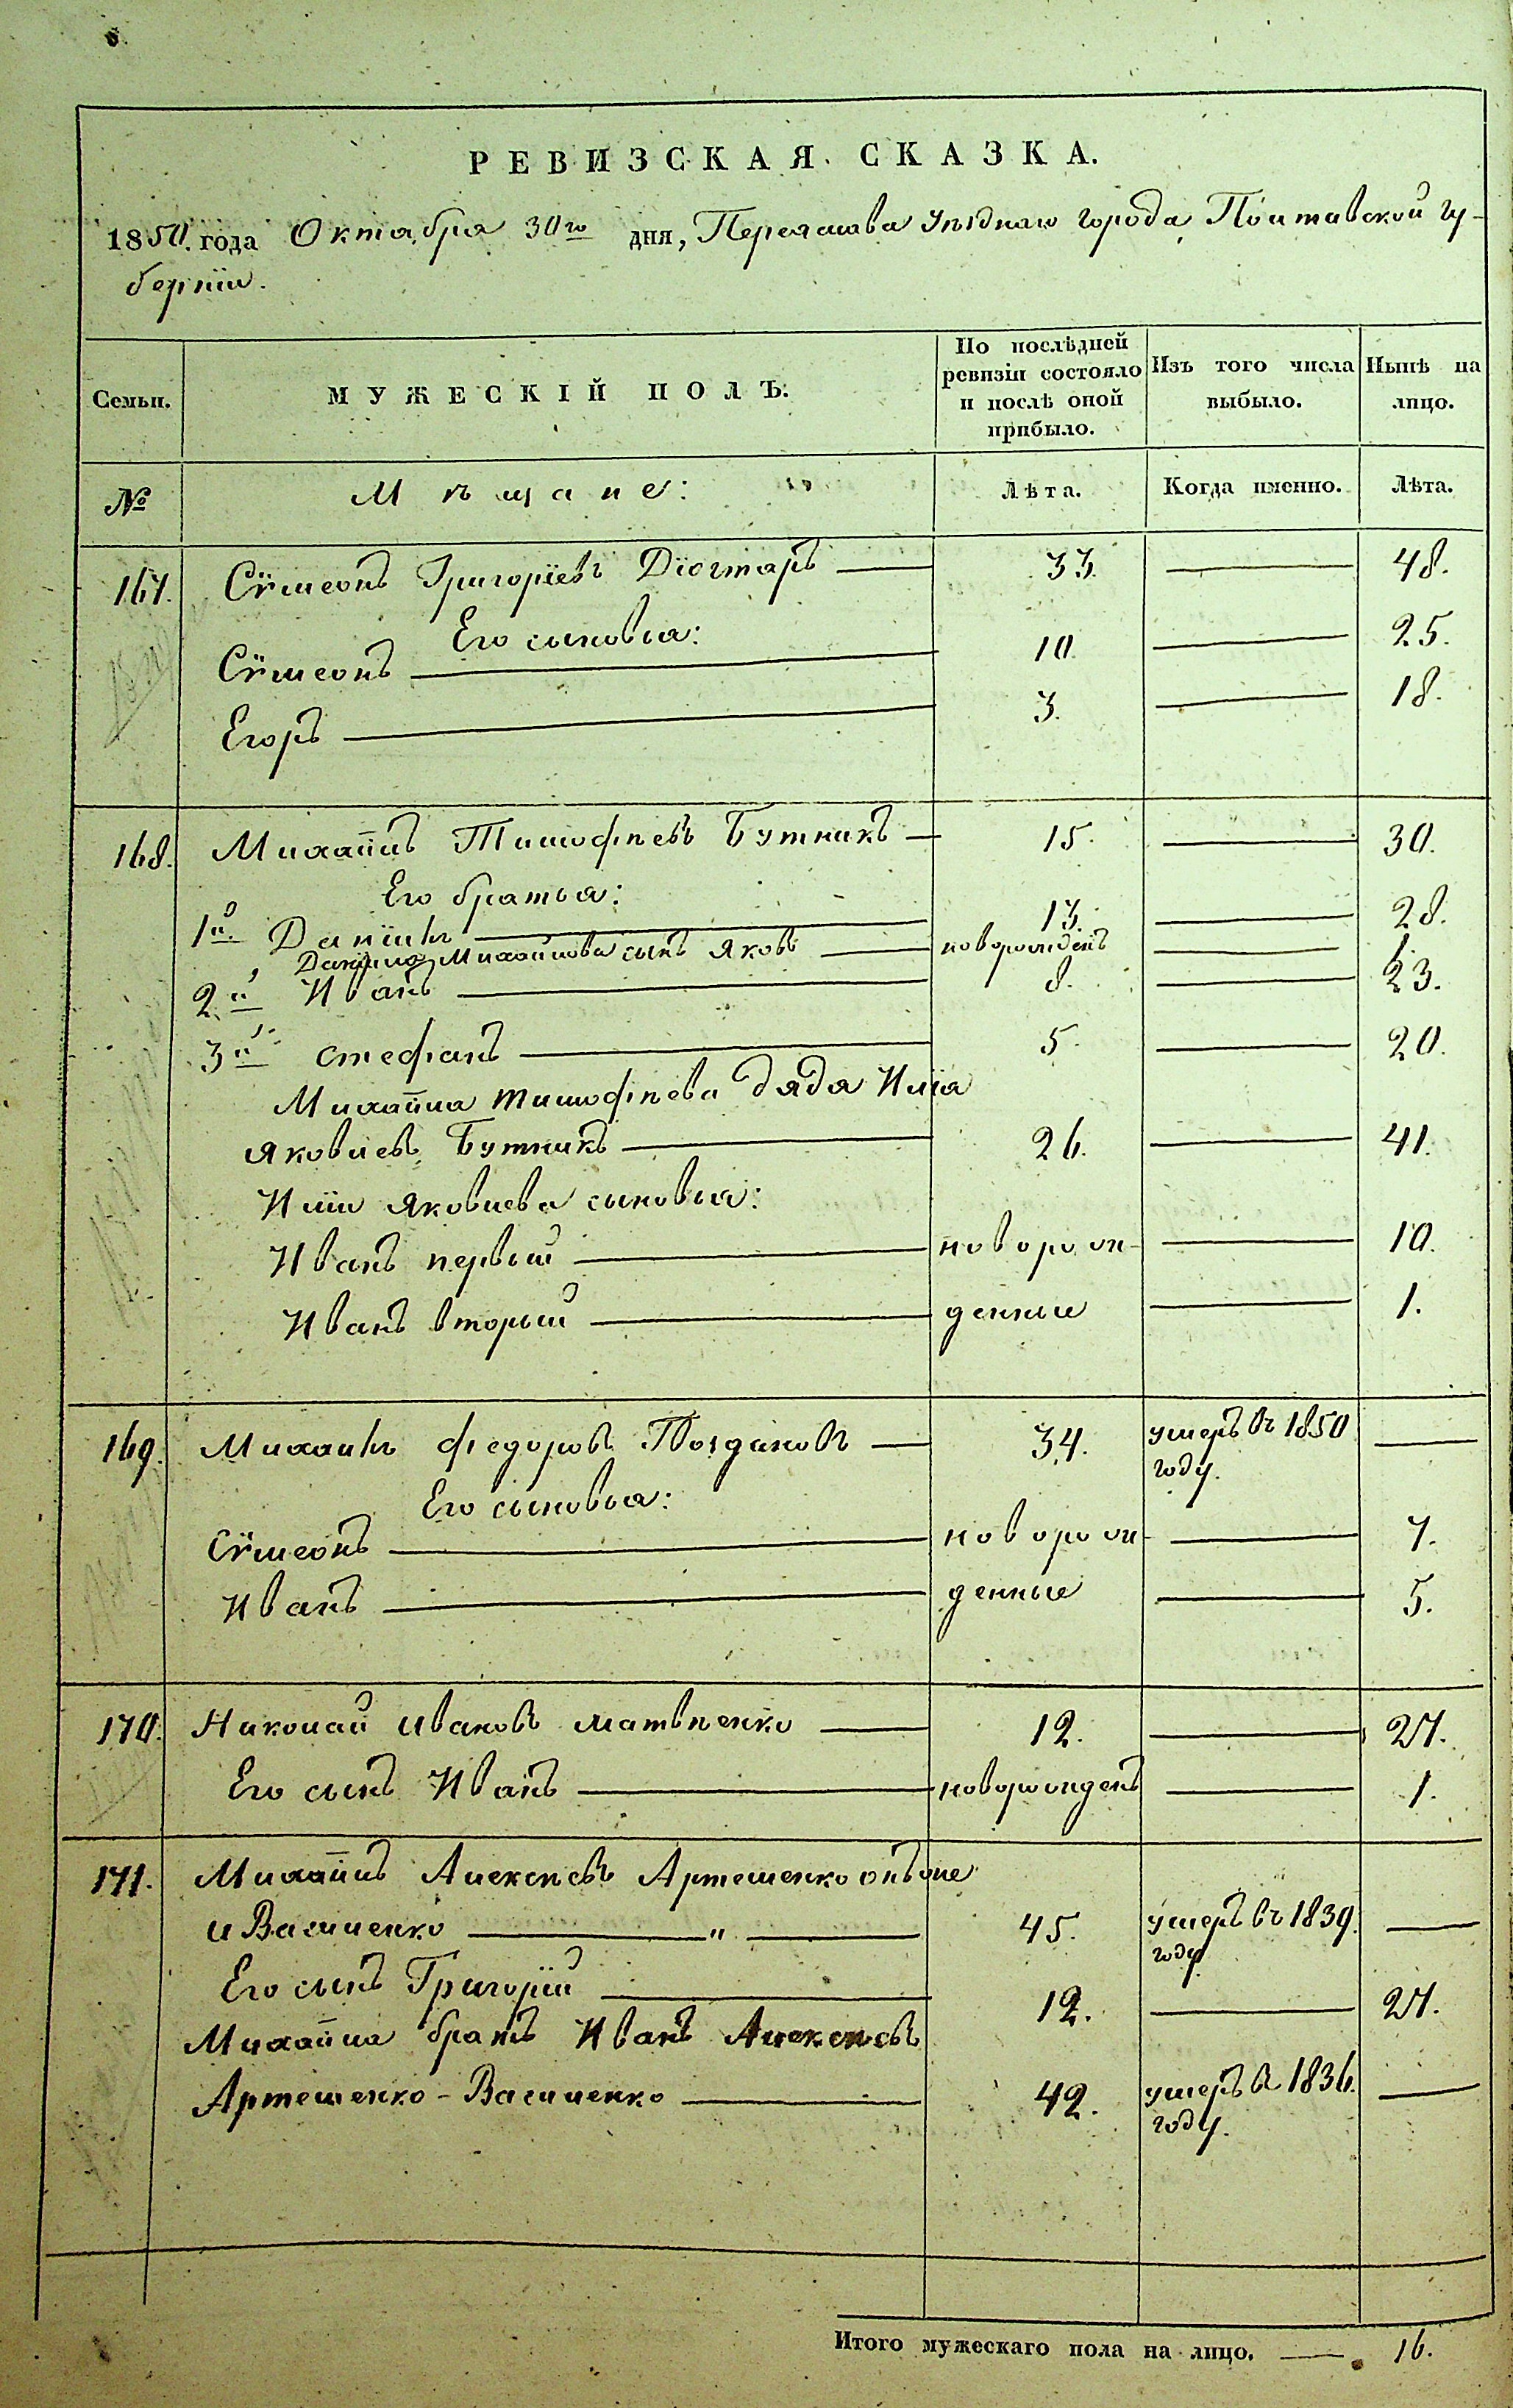 РЕВИЗСКАЯ СКАЗКА.
1850. года Октабря 30го дня, Переяслава Уѣзднаго города, Полтавской гу-
берніи.
Семьи. МУЖЕСКІЙ ПОЛЪ. По послѣдней ревизіи состояло и послѣ оной прибыло. Изъ того числа выбыло. Нынѣ на лицо.
№ Мѣщане: Лѣта. Когда именно. Лѣта.
167. Сѵмеонъ Григоріевъ Дігтаръ — 33. — 48.
Его сыновья:
Сѵмеонъ — 10. — 25.
Егоръ — 3. — 18.
168. Михаилъ Тимофѣевъ Бутникъ — 15. — 30.
Его братья:
1й. Даніилъ — 13. — 28.
Данила Михайлова сынъ Яковъ — новорожденъ — 1.
2й Иванъ — 8. — 23.
3й Стефанъ — 5. — 20.
Михаила Тимофѣева дядя Илія
Яковлевъ Бутникъ — 26. — 41.
Иліи Яковлева сыновья:
Иванъ первый — новорож- — 10.
Иванъ вторый — денные — 1.
169. Михаилъ Федоровъ Гвоздиковъ — 34. умеръ въ 1850 —
году.
Его сыновья:
Сѵмеонъ — новорож- — 7.
Иванъ — денные — 5.
170. Николай Ивановъ Матвѣенко — 12. — 27.
Его сынъ Иванъ — новорожденъ — 1.
171. Михаилъ Алексѣевъ Артешенко онъ же
и Василенко — " — 45. умеръ въ 1839. —
году.
Его сынъ Григорій — 12. — 27.
Михаила братъ Иванъ Алексѣевъ
Артешенко-Василенко — 42. умеръ въ 1836. —
году.
Итого мужескаго пола на лицо. — 16.